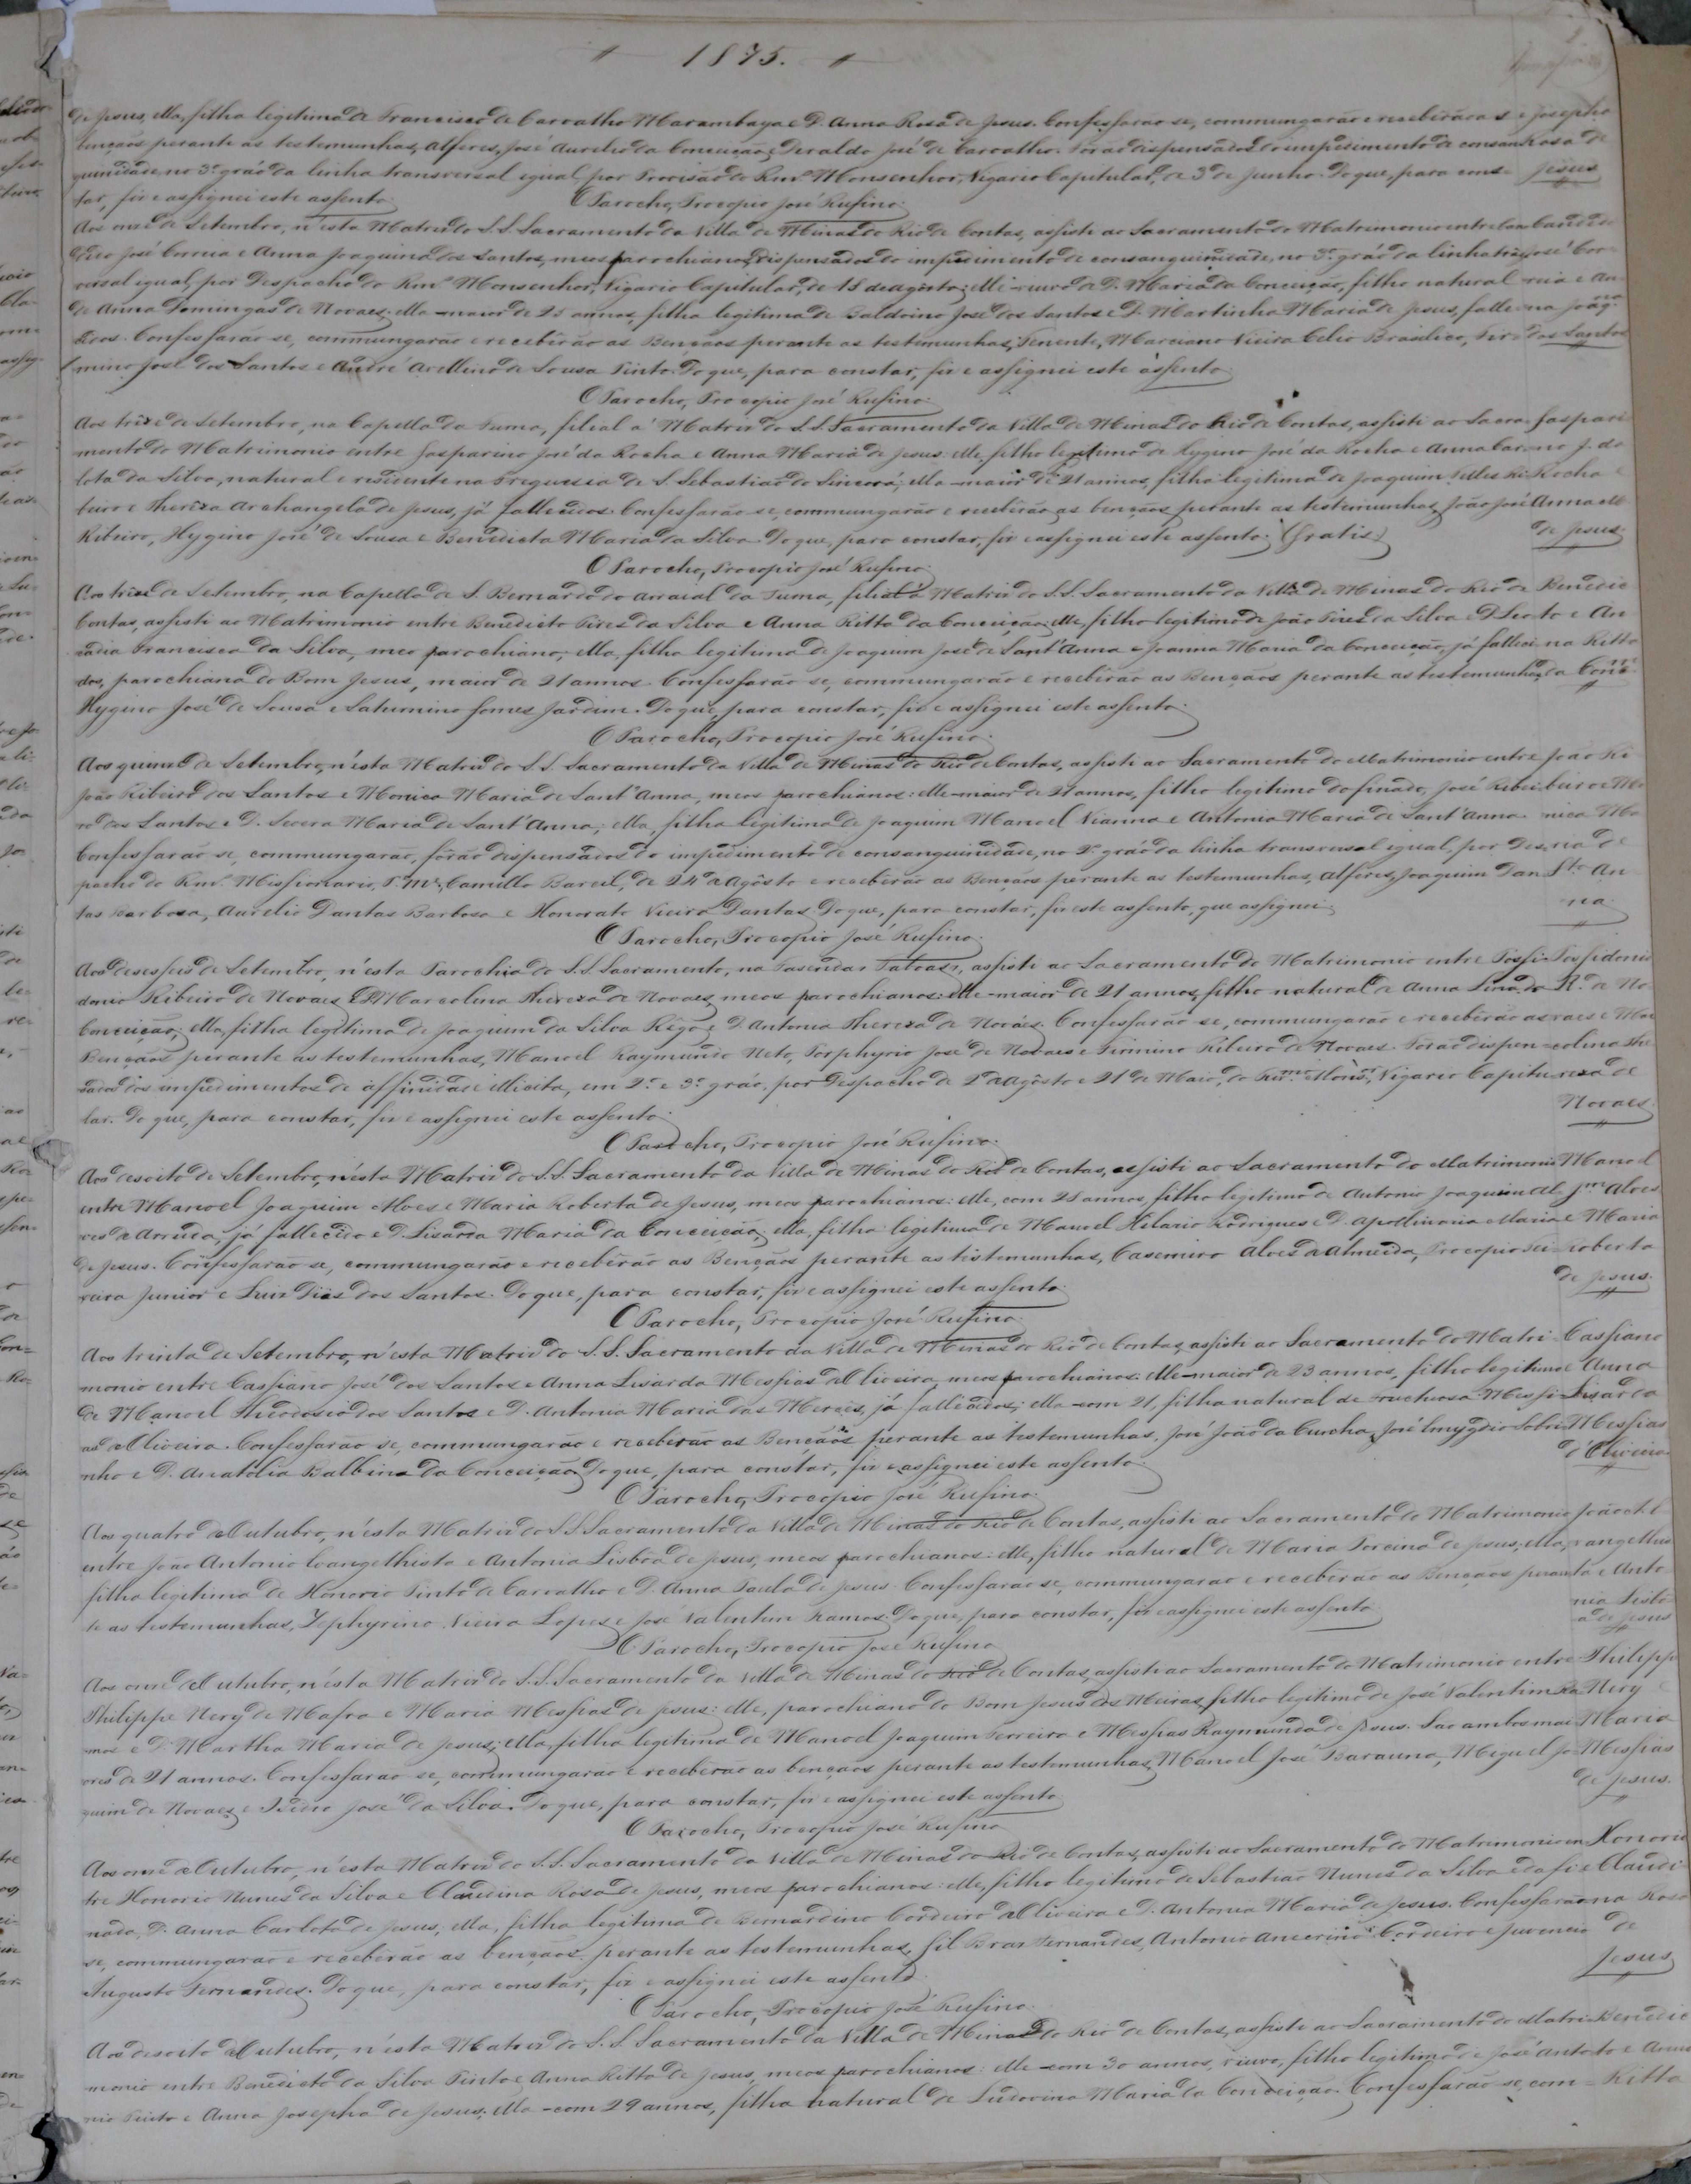 1875.
de Jesus, ella, filha legitima de Francisco de Carvalho Marambaya e D. Anna Rosa de Jesus. Confessarão-se, commungarão e receberão as
bençãos perante as testemunhas, Alferes, José Aurelio da Conceição e Deraldo José de Carvalho. Forão dispensados do impedimento de consan
guinidade, no 3º gráo da linha transversal igual, por Provisão do Rmº Monsenhor, Vigario Capitular, de 3 de Junho. Do que, para cons-
tar, fiz e assignei este assento.
e Josepha
Rosa de
Jesus
O Parocho, Procopio José Rufino.
Aos onze de Setembro, n'esta Matriz do S.S. Sacramento da Villa de Minas do Rio de Contas, assisti ao Sacramento do Matrimonio entre
José Correia e Anna Joaquina dos Santos, meos parochianos, dispensados do impedimento de consanguinidade, no 3º gráo da linha trans
versal igual, por Despacho do Rmº Monsenhor, Vigario Capitular, de 18 de Agosto; elle-viuvo de D. Maria da Conceição, filho natural
de Anna Domingas de Novaes; ella-maior de 25 annos, filha legitima de Baldoino José dos Santos e D. Martinha Maria de Jesus, falle-
cidos. Confessarão-se, commungarão e receberão as Bençãos perante as testemunhas, Tenente, Marciano Vieira Celio Brasileo, Fir
mino José dos Santos e André Avellino de Sousa Pinto. Do que, para constar, fiz e assignei este assento.
José Cor-
reia e An-
na Joaqna
dos Santos
O Parocho, Procopio José Rufino.
Aos trêse de Setembro, na Capella da Furna, filial á Matriz do S.S. Sacramento da Villa de Minas do Rio de Contas, assisti ao Sacra-
mento do Matrimonio entre Gasparino José da Rocha e Anna Maria de Jesus: elle, filho legitimo de Hygino José da Rocha e Anna Car-
lota da Silva, natural e residente na Freguesia de S. Sebastião do Sincorá; ella-maior de 21 annos, filha legitima de Joaquim Telles Ri-
beiro e Thereza Archangela de Jesus, já fallecidos. Confessarão-se, commungarão e receberão as bençãos perante as testemunhas, João José
Ribeiro, Hygino José de Sousa e Benedicta Maria da Silva. Do que, para constar, fiz e assignei este assento. (Gratis)
Gaspari-
no J. da
Rocha e
Anna M.
de Jesus.
O Parocho, Procopio José Rufino.
Aos trêse de Setembro, na Capella de S. Bernardo do Arraial da Furna, filial á Matriz do S.S. Sacramento da Villa de Minas do Rio de
Contas, assisti ao Matrimonio entre Benedicto Pires da Silva e Anna Ritta da Conceição: elle, filho legitimo de João Pires da Silva e D. Leo-
cadia Francisca da Silva, meo parochiano; ella, filha legitima de Joaquim José de Sant'Anna e Joanna Maria da Conceição, já falleci-
dos, parochiana do Bom Jesus, maior de 21 annos. Confessarão-se, commungarão e receberão as Bençãos perante as testemunhas,
Hygino José de Sousa e Saturnino Gomes Jardim. Do que, para constar, fiz e assignei este assento.
Benedic
to e An
na Ritta
da Conc.
O Parocho, Procopio José Rufino.
Aos quinze de Setembro, n'esta Matriz do S.S. Sacramento da Villa de Minas do Rio de Contas, assisti ao Sacramento do Matrimonio entre
João Ribeiro dos Santos e Monica Maria de Sant'Anna, meos parochianos: elle-maior de 21 annos, filho legitimo do finado, José Ribei
ro dos Santos e D. Severa Maria de Sant'Anna; ella, filha legitima de Joaquim Manoel Vianna e Antonia Maria de Sant'Anna.
Confessarão-se, commungarão, fôrão dispensados do impedimento de consanguinidade, no 2º gráo da linha transversal igual, por Des-
pacho do Rmº Missionario, Camillo de 24 de Agôsto e receberão as Bençãos perante as testemunhas, Alferes, Joaquim Dan
tas Barbosa, Aurelio Dantas Barbosa e Honorato Vieira Dantas. Do que, para constar, fiz este assento, que assignei.
João Ri-
beiro e Mo
nica Ma
ria de
An-
na.
O Parocho, Procopio José Rufino.
Aos desesseis de Setembro, n'esta Parochia do S.S. Sacramento, na Fasenda assisti ao Sacramento do Matrimonio entre Possi-
donio Ribeiro de Novaes e D. Marcolina Thereza de Novaes, meos parochianos: elle-maior de 21 annos, filho natural de Anna da
Conceição; ella, filha legitima de Joaquim da Silva Rêgo e D. Antonia Thereza de Nováes. Confessarão-se, commungarão e receberão as
Bençãos perante as testemunhas, Manoel Raymundo Neto, Porphyrio José de Novaes e Firmino Ribeiro de Novaes. Forão dispen-
sados dos impedimentos de affinidade illicita, em 2º e 3º gráo, por Despacho de 2 de Agôsto e 21 de Maio, do Rmº Monsr, Vigario Capitu-
lar. Do que, para constar, fiz e assignei este assento.
Possidonio
R. de No-
vaes e Mar
colina The
reza de
Novaes.
O Parocho, Procopio José Rufino.
Aos desoito de Setembro, n'esta Matriz do S.S. Sacramento da Villa de Minas do Rio de Contas, assisti ao Sacramento do Matrimonio
entre Manoel Joaquim Alves e Maria Roberta de Jesus, meos parochianos: elle, com 28 annos, filho legitimo de Antonio Joaquim Al-
ves de Arruda, já fallecido e D. Lisarda Maria da Conceição; ella, filha legitima de Manoel Hilario Rodrigues e D. Apollinaria Maria
de Jesus. Confessarão-se, commungarão e receberão as Bençãos perante as testemunhas, Casemiro Alves de Almeida, Procopio Tei-
xeira Junior e Luiz Dias dos Santos. Do que, para constar, fiz e assignei este assento.
Manoel
Jm Alves
e Maria
Roberta
de Jesus.
O Parocho, Procopio José Rufino.
Aos trinta de Setembro, n'esta Matriz do S.S. Sacramento da Villa de Minas do Rio de Contas, assisti ao Sacramento do Matri-
monio entre Cassiano José dos Santos e Anna Lisarda Messias d'Oliveira, meos parochianos: elle-maior de 23 annos, filho legitimo
de Manoel Theodosio dos Santos e D. Antonia Maria das Mercês, já fallecidos; ella-com 21, filha natural de Fructuosa Messi-
as d'Oliveira. Confessarão-se, commungarão e receberão as Bençãos perante as testemunhas, José João da Cunha, José Emygdio Sobri-
nho e D. Anatolia Balbina da Conceição. Do que, para constar, fiz e assignei este assento.
Cassiano
e Anna
Lisarda
Messias
d'Oliveira
O Parocho, Procopio José Rufino.
Aos quatro d'Outubro, n'esta Matriz do S.S. Sacramento da Villa de Minas do Rio de Contas, assisti ao Sacramento do Matrimonio
entre João Antonio Evangelhista e Antonia Lisbôa de Jesus, meos parochianos: elle, filho natural de Maria de Jesus; ella,
filha legitima de Honorio Pinto de Carvalho e D. Anna Paula de Jesus. Confessarão-se, commungarão e receberão as Bençãos peran-
te as testemunhas, Zephyrino Vieira Lopes e José Valentim Ramos. Do que, para constar, fiz e assignei este assento.
João A. E
vangelhis
ta e Anto-
nia Lisbo-
a de Jesus
O Parocho, Procopio José Rufino.
Aos onze d'Outubro, n'esta Matriz do S.S. Sacramento da Villa de Minas do Rio de Contas, assisti ao Sacramento do Matrimonio entre
Philippe Nery de Mafra e Maria Messias de Jesus: elle, parochiano do Bom Jesus dos Meiras, filho legitimo de José Valentim Ra
mos e D. Martha Maria de Jesus; ella, filha legitima de Manoel Joaquim Ferreira e Messias Raymunda de Jesus. São ambos mai
ores de 21 annos. Confessarão-se, commungarão e receberão as bençãos perante as testemunhas, Manoel José Barauna, Miguel Joa-
quim de Novaes e Isidio José da Silva. Do que, para constar, fiz e assignei este assento.
Philippe
Nery e
Maria
Messias
de Jesus.
O Parocho, Procopio José Rufino.
Aos onze d'Outubro, n'esta Matriz do S.S. Sacramento da Villa de Minas do Rio de Contas, assisti ao Sacramento do Matrimonio en
tre Honorio Nunes da Silva e Claudina Rosa de Jesus, meos parochianos: elle, filho legitimo de Sebastião Nunes da Silva e da fi-
nada, D. Anna Carlota de Jesus; ella, filha legitima de Bernardino Cordeiro d'Oliveira e D. Antonia Maria de Jesus. Confessarão-
se, commungarão e receberão as bençãos perante as testemunhas, Gil Braz Fernandes, Antonio Cordeiro e Juvencio
Augusto Fernandes. Do que, para constar, fiz e assignei este assento.
Honorio
e Claudi-
na Rosa
de
Jesus
O Parocho, Procopio José Rufino.
Aos desoito d'Outubro, n'esta Matriz do S.S. Sacramento da Villa de Minas do Rio de Contas, assisti ao Sacramento do Matri-
monio entre Benedicto da Silva Pinto e Anna Ritta de Jesus, meos parochianos: elle-com 30 annos, viuvo, filho legitimo de José Anto-
nio Pinto e Anna Josepha de Jesus; ella-com 29 annos, filha natural de Ludovina Maria da Conceição. Confessarão-se, com-
Benedic
to e Anna
Ritta